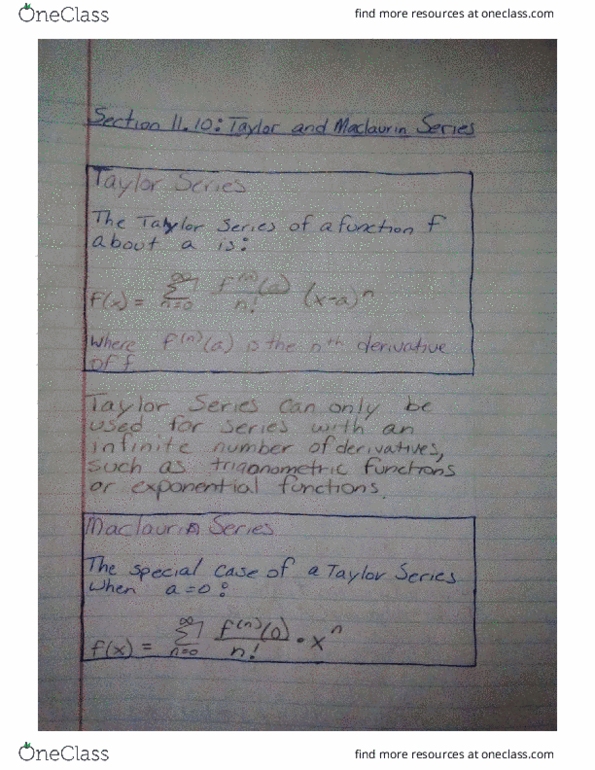 OneClass
find more resources at oneclass.com
Section 11.10: Taylor and Maclaurin Series
Taylor Series
The Taylor Series of a function f
about a is:
f(x) = ∞Σn=0 f⁽ⁿ⁾(a)/n! (x-a)ⁿ
Where f⁽ⁿ⁾(a) is the nᵗʰ derivative
of f
Taylor Series can only be
used for series with an
infinite number of derivatives,
such as trigonometric functions
or exponential functions.
Maclaurin Series
The special case of a Taylor Series
When a=0:
f(x) = ∞Σn=0 f⁽ⁿ⁾(0)/n! • xⁿ
OneClass
find more resources at oneclass.com